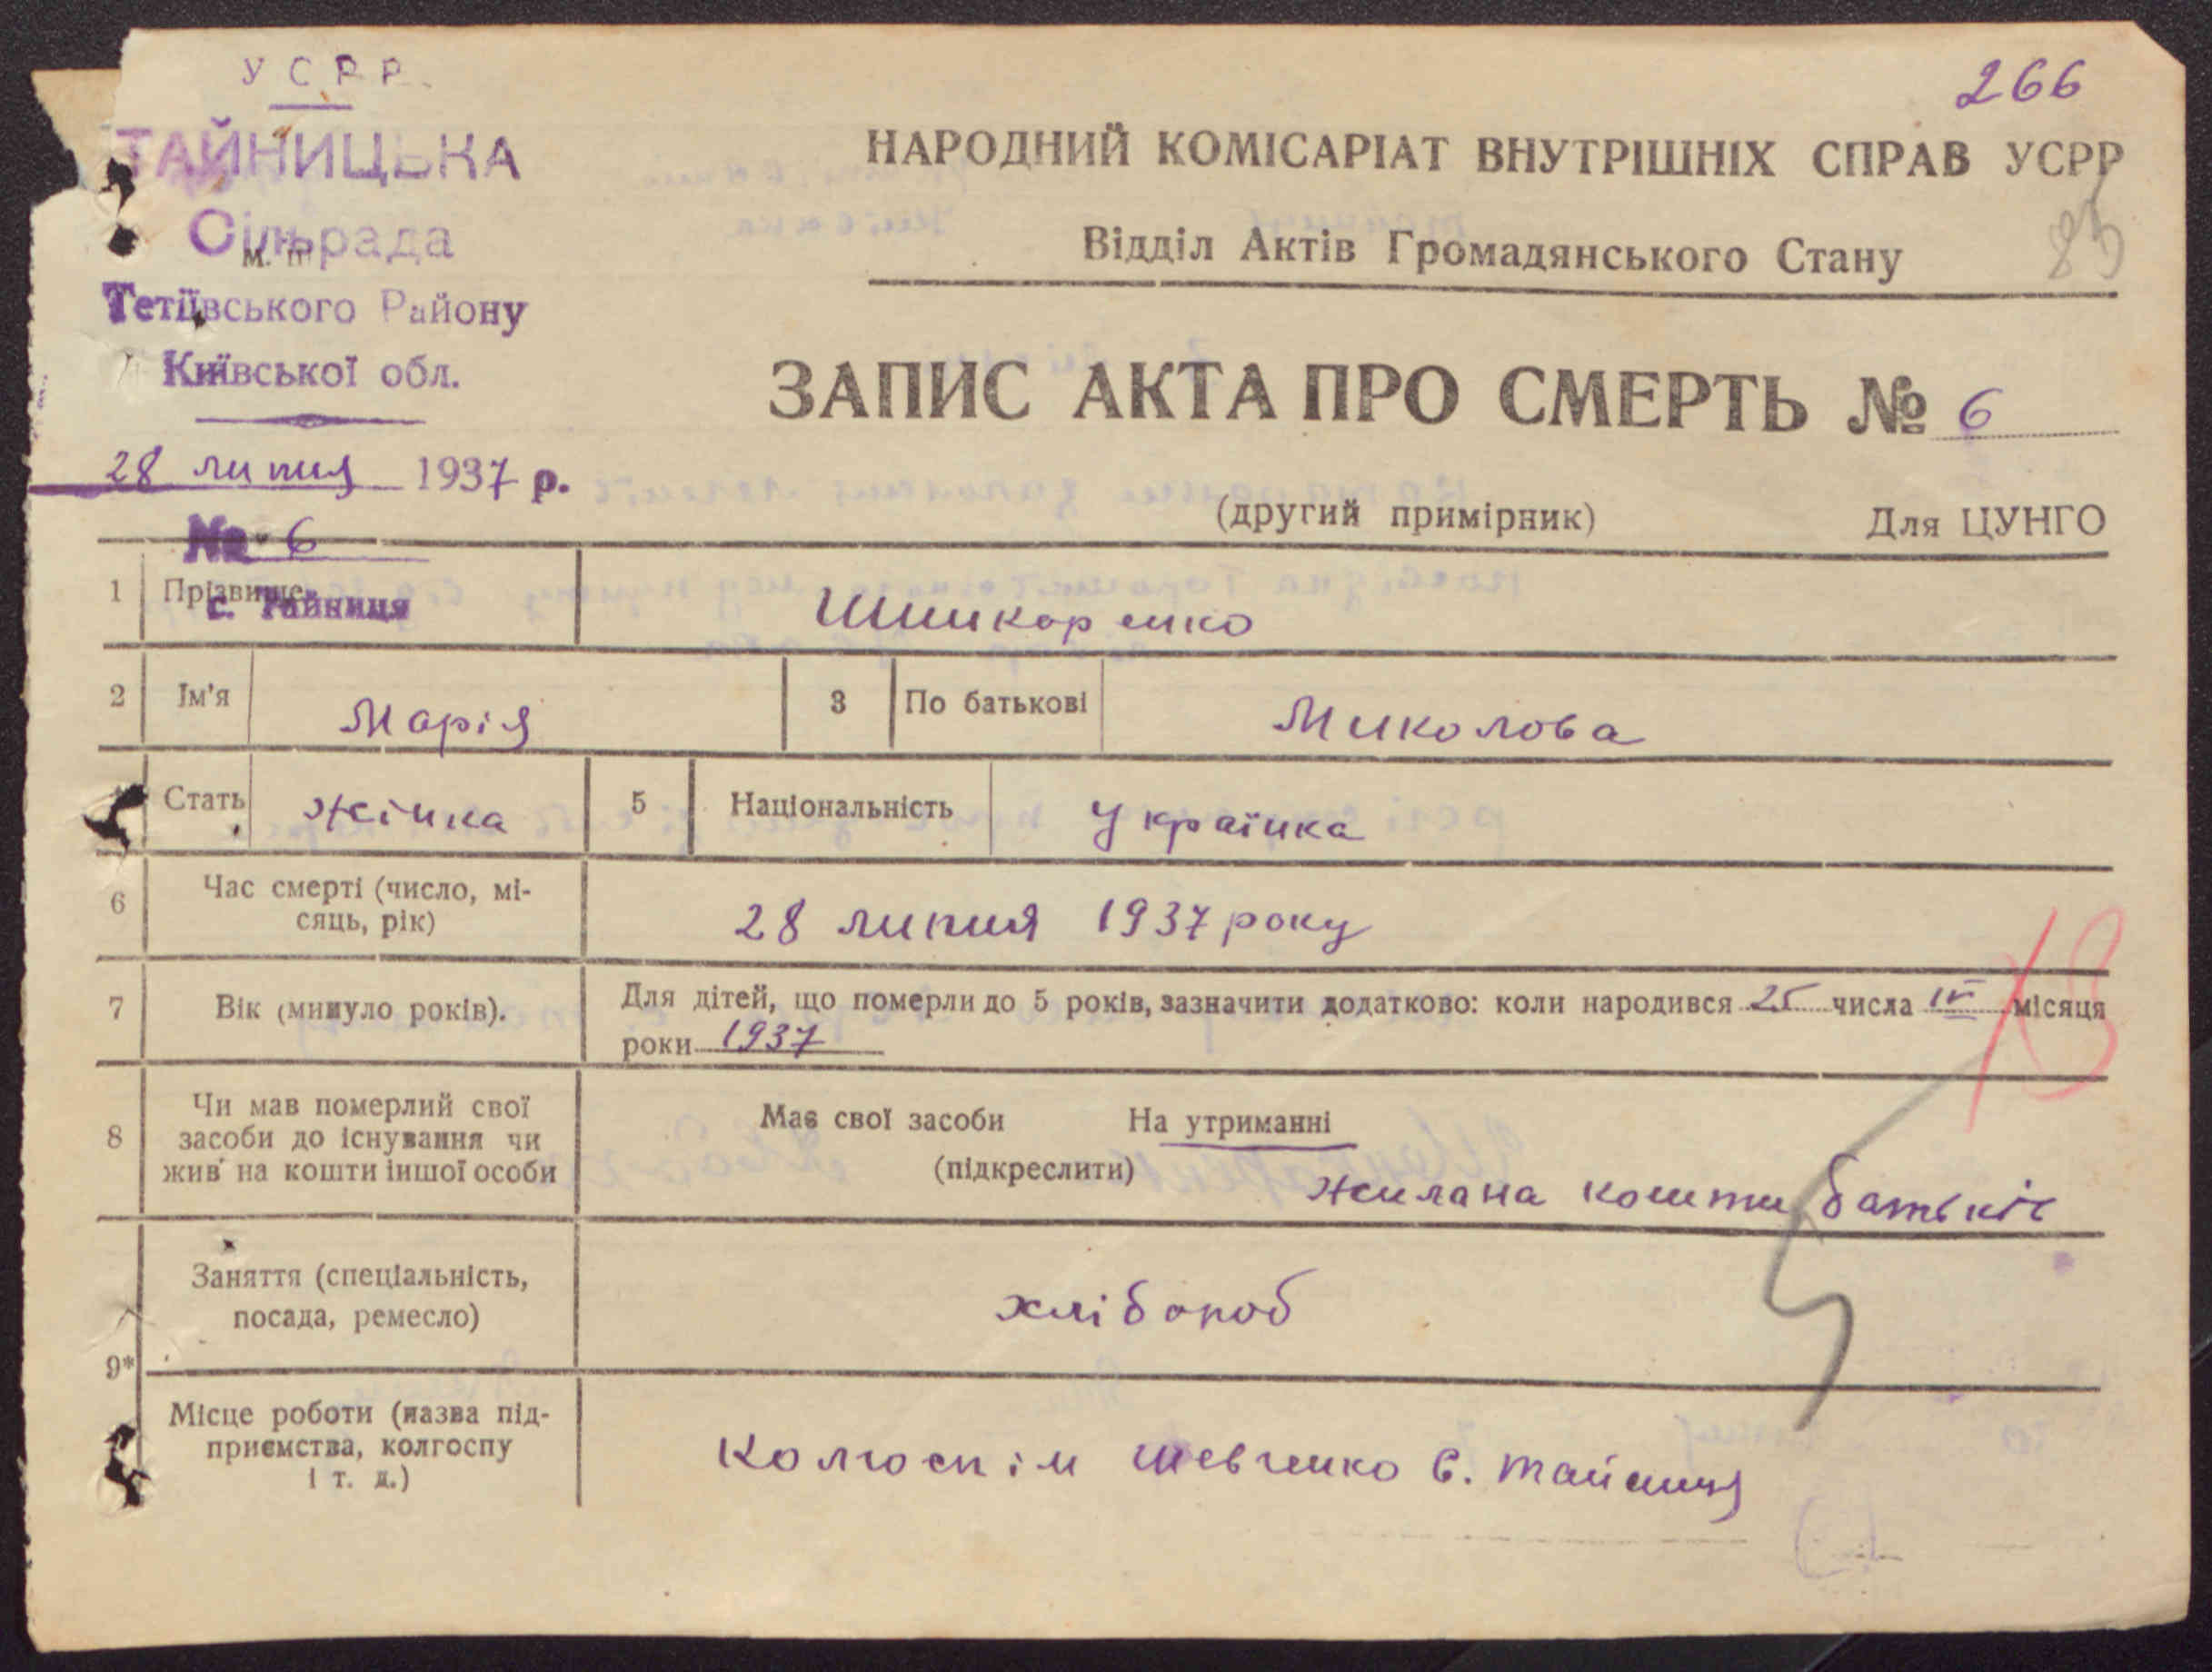 УСРР
266
ТАЙНИЦЬКА
Сільрада
м. п.
Тетіївського Району
Київської обл.
НАРОДНИЙ КОМІСАРІАТ ВНУТРІШНІХ СПРАВ УСРР
Відділ Актів Громадянського Стану
ЗАПИС АКТА ПРО СМЕРТЬ № 6
28 липня 1937 р.
№ 6
с. Тайниця
(другий примірник) Для ЦУНГО
1 Прізвище Шинкаренко
2 Ім'я Марія 3 По батькові Миколова
Стать жінка 5 Національність Українка
6 Час смерті (число, мі-
сяць, рік) 28 липня 1937 року
7 Вік (минуло років). Для дітей, що померли до 5 років, зазначити додатково: коли народився 25 числа IV місяця
роки 1937
8 Чи мав померлий свої
засоби до існування чи
жив на кошти іншої особи
Має свої засоби На утриманні
(підкреслити)
жила на кошти батьків
9* Заняття (спеціальність,
посада, ремесло) хлібороб
Місце роботи (назва під-
приємства, колгоспу
і т. д.)
Колгосп ім Шевченко с. Тайниця